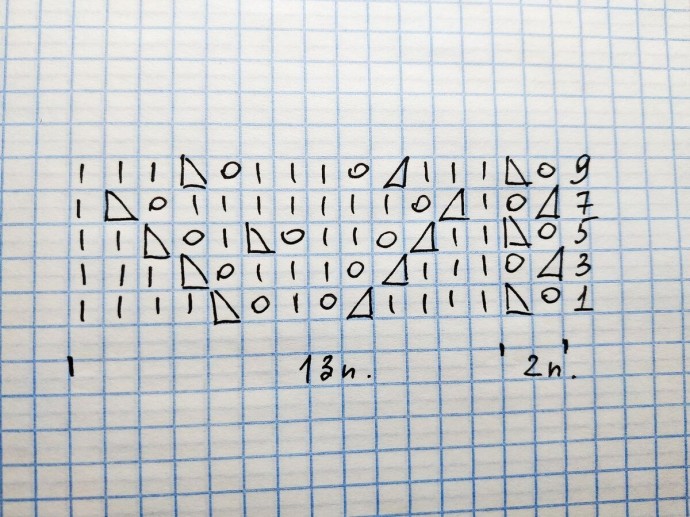 | | | ◺ O | | | O ◿ | | | ◺ O 9
| ◺ O | | | | | | | O ◿ | O ◿ 7
| | ◺ O | ◺ O | | O ◿ | | ◺ O 5
| | | ◺ O | | | O ◿ | | | O ◿ 3
| | | | ◺ O | O ◿ | | | | ◺ O 1
13п. 2п.